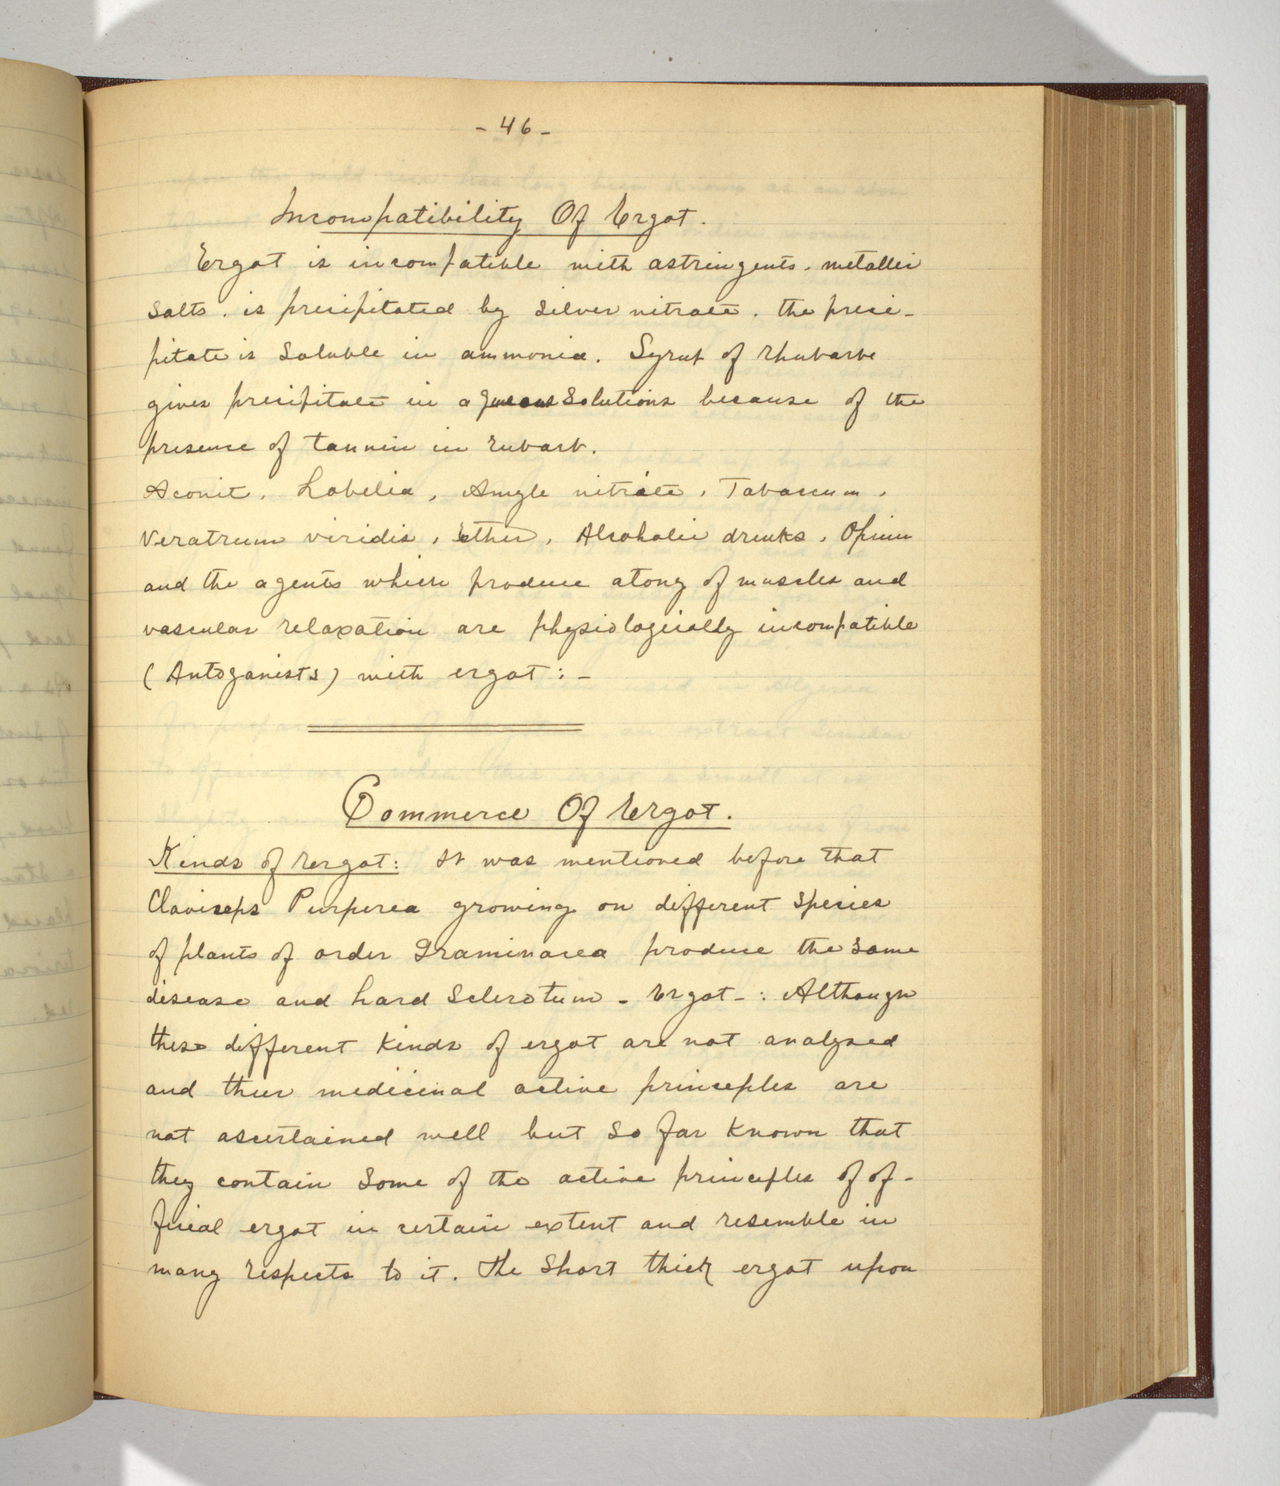 - 46 -
Incompatibility Of Ergot.
Ergot is incompatible with astringents, metallic
salts, is precipitated by silver nitrate, the preci-
pitate is soluble in ammonia. Syrup of rhubarbe
gives precipitate in aqueous solutions because of the
presence of tannin in rubarb.
Aconit, Lobelia, Amyle nitrate, Tabaccum,
Veratrum viridis, Ether, Alcoholic drinks, Opium
and the agents which produce atony of muscles and
vascular relaxation are physiologically incompatible
(Antoganists) with ergot : -
Commerce Of Ergot.
Kinds of ergot: It was mentioned before that
Claviseps Purperea growing on different species
of plants of order Graminacea produce the same
disease and hard Sclerotum - Ergot - : Although
these different kinds of ergot are not analysed
and their medicinal active principles are
not ascertained well but so far known that
they contain some of the active principles of of-
ficial ergot in certain extent and resemble in
many respects to it. The short thick ergot upon